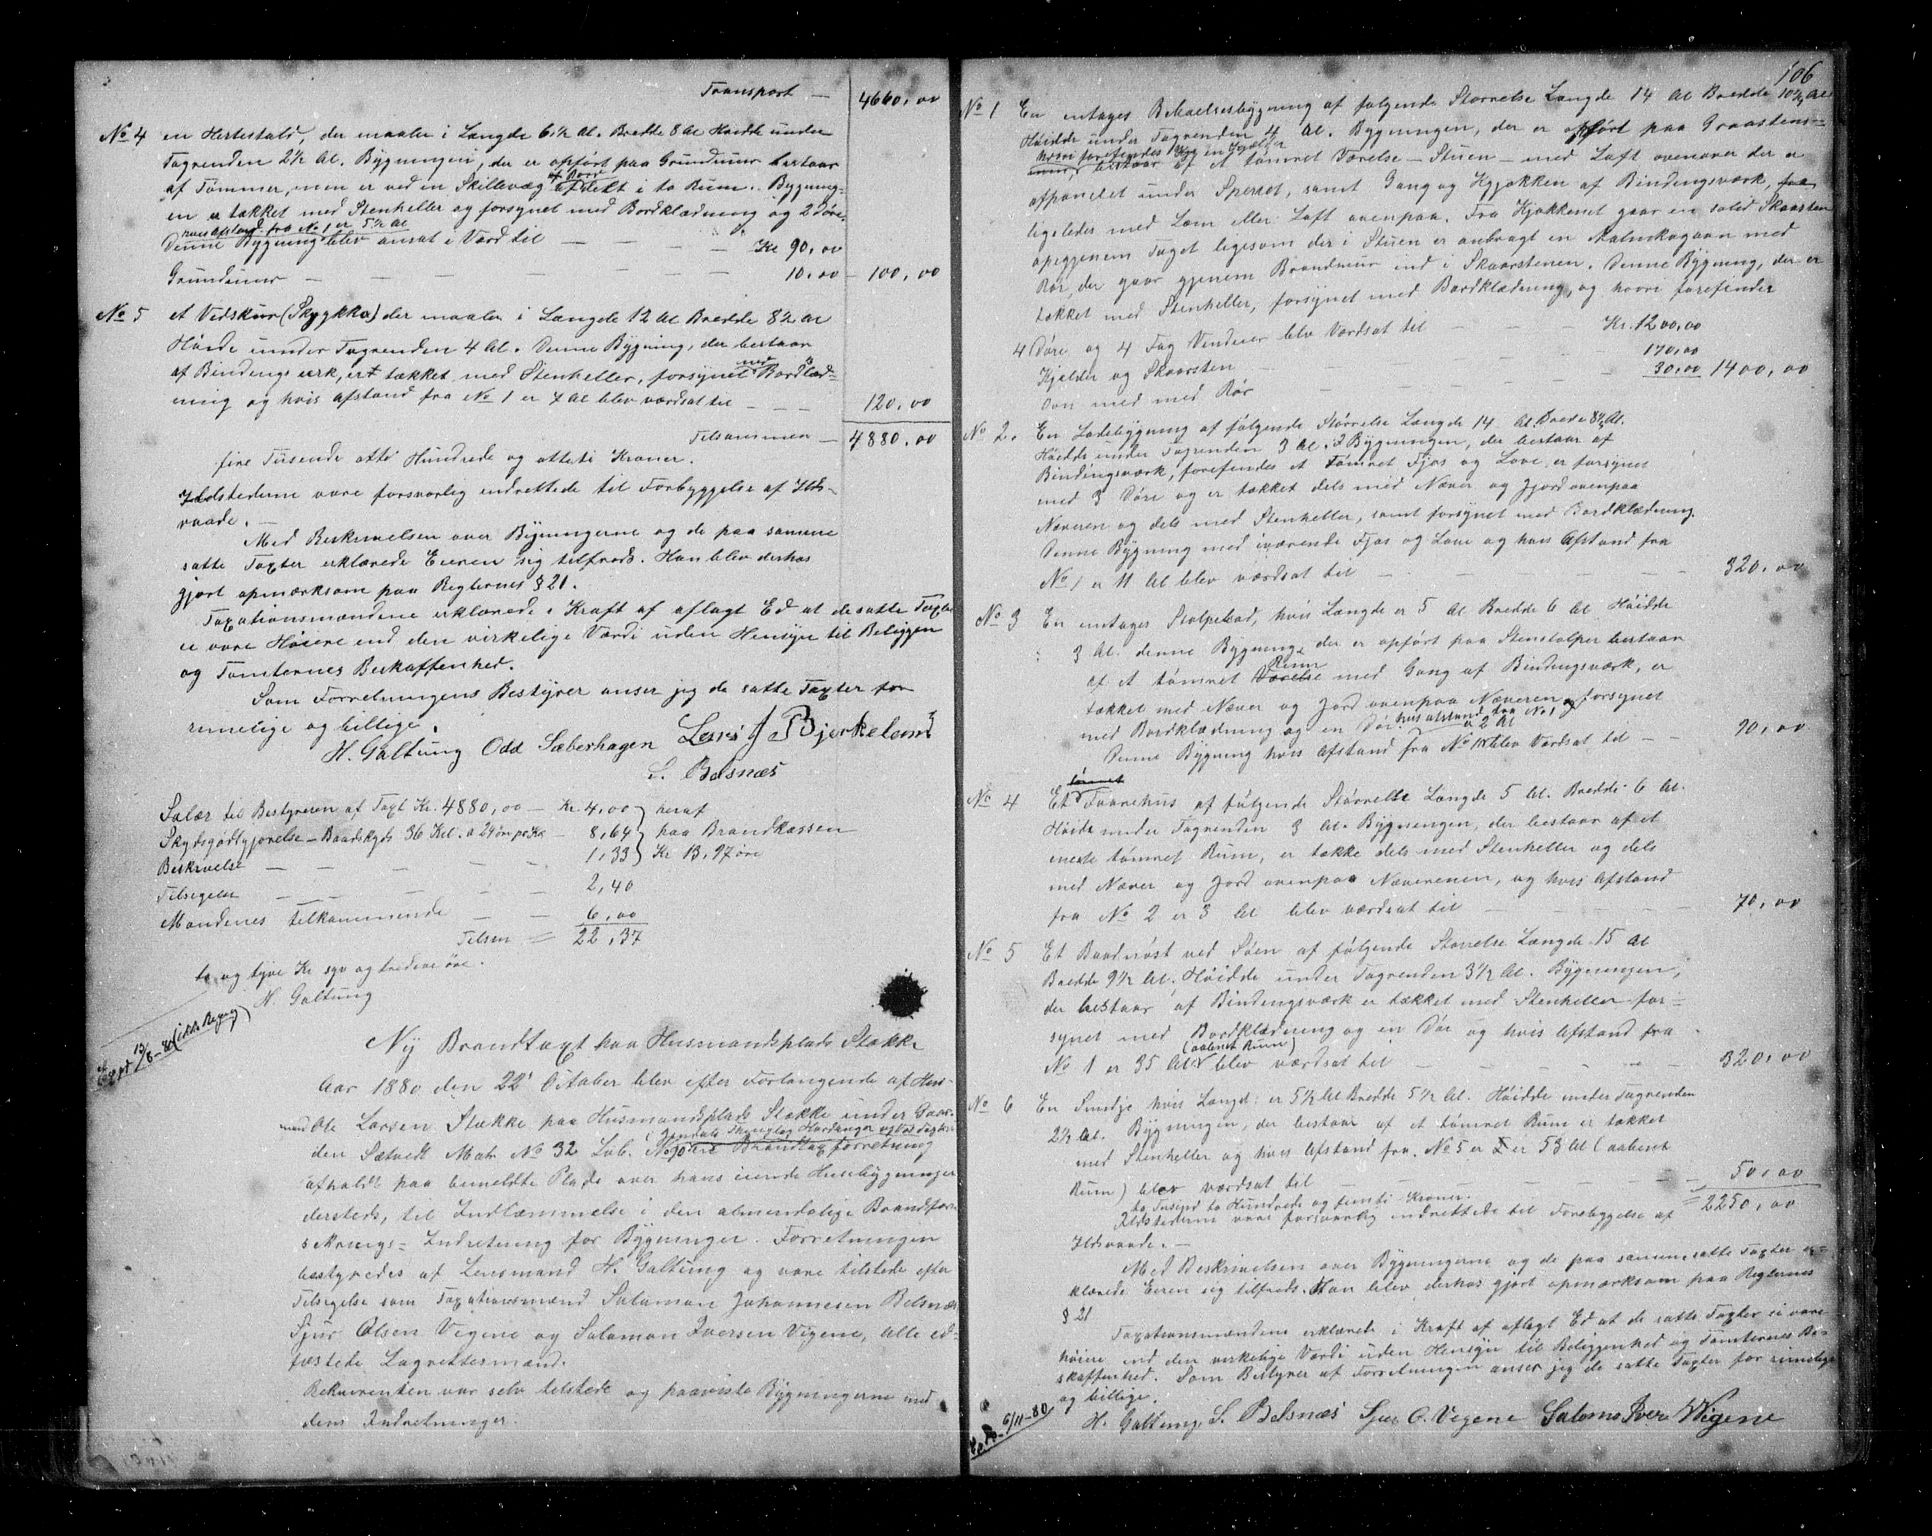 Transport — 4660,00
No 4 en Hestestald, der maaler i Længde 6½ Al. Bredde 8 Al Høidde under
Tagrenden 2½ Al. Bygningen, der er opført paa Grundmur bestaar
af Tømmer, men er ved en Skillevæg af Bord afdelt i to Rum. Bygning-
en er tækket med Stenheller og forsynet med Bordklædning og 2 Døre
hvis afstand fra No 1 er 5½ Al
Denne Bygning blev ansat i Værd til — — — Kr 90,00
Grundmur — — — — — — 10,00 — 100,00
No 5 et Vedskur (Skykkje) der maaler i Længde 12 Al Bredde 8½ Al
Høide under Tagrenden 4 Al. Denne Bygning, der bestaar
af Bindingsværk, er tækket med Stenheller, forsynet med Bordklæd=
ning og hvis Afstand fra No 1 er 7 Al blev værdsat til — — — 120,00
Tilsammen — 4880,00
fire Tusende otte Hundrede og otteti Kroner.
Ildstederne vare forsvarlig indrettede til Forbyggelse af Ilds-
vaade. —
Med Beskrivelsen over Bygningerne og de paa samme
satte Taxter erklærede Eieren sig tilfreds. Han blev derhos
gjort opmærksom paa Reglernes § 21.
Taxationsmændene erklærede i Kraft af aflagt Ed at de satte Taxter
ei vare Høiere end den virkelige Værdi uden Hensyn til Beliggen
og Tomternes Beskaffenhed.
Som Forretningens Bestyrer anser jeg de satte Taxter for
rimelige og billige.
H. Galtung Odd Sæberhagen Lars J Bjerkeland
S. Belsnæs
Salær til Bestyreren af Taxt Kr. 4880,00 — Kr. 4,00 } heraf
Skydsgodtgjørelse — Baadskyds 36 Kil. a 24 øre pr Kil — 8,64 } paa Brandkassen
Beskrivelse — — — 1,33 } Kr 13,97 øre
Tilsigelse — — — 2,40
Mændenes tilkommende — — 6,00
Tilsm = 22,37
to og tyve Kr syv og tredeve øre.
H. Galtung
Ny Brandtaxt paa Husmandsplads Stække
Aar 1880 den 22' October blev efter Forlangende af Hus-
mand Ole Larsen Stække paa Husmandsplads Stække under Gaar-
den Sætvedt Matr No 32 Lub. No
Brandtaxtforretning
afholdt paa bemeldte Plads over hans eiende Husebygninger
dersteds, til Indlemmelse i den almendelige Brandfor-
sikrings= Indretning for Bygninger. Forretningen
bestyredes af Lensmand H. Galtung og vare tilstede efter
Tilsigelse som Taxationsmænd Salamon Johannesen Belsnæs
Sjur Olsen Vigene og Salamon Iversen Vigene, alle ed-
fæstede Lagrettesmænd.
Rekvirenten var selv tilstede og paaviste Bygningerne med
dens Indretninger.
106
No 1 En entages Beboelsesbygning af følgende Størrelse Længde 14 Al Bredde 10½ Al
Høidde under Tagrenden 4 Al. Bygningen, der er opført paa Graastens=
mur, hvori forefindes en Kjelder
bestaar af et tømret Værelse — Stuen — med Loft ovenover der er
afpanelet under Sperset, samt Gang og Kjøkken af Bindingsværk,
ligeledes med Læm eller Loft ovenpaa. Fra Kjøkkenet gaar en solid Skaarsten
opigjenem Taget ligesom der i Stuen er anbragt en Malmkogaavn med
Rør, der gaar gjenem Brandmur ind i Skaarstenen. Denne Bygning, der er
tækket med Stenheller, forsynet med Bordklædning, og hvori forefindes
4 Døre og 4 Fag Vinduer blev Værdsat til — — — Kr. 1200,00
Kjelder og Skaarsten — — — 170,00
Ovn med med Rør — — — 30,00 1400,00
No 2. En Ladebygning af følgende Størrelse Længde 14 Al. Bredde 8½ Al.
Høidde under Tagrenden 3 Al. I Bygningen, der bestaar af
Bindingsværk, forefindes et Tømret Fjøs og Love er forsynet
med 3 Døre og er tækket dels med Næver og Jord ovenpaa
Næveren og dels med Stenheller, samt forsynet med Bordklædning.
Denne Bygning med iværende Fjøs og Love og hvis Afstand fra
No 1 er 11 Al blev værdsat til — — — 320,00
No 3 En entages Stolpebod, hvis Længde er 5 Al Bredde 6 Al Høidde
3 Al. denne Bygning, der er opført paa Stenstolper bestaar
af et tømret Rum med Gang af Bindingsværk, er
tækket med Næver og Jord ovenpaa Næveren og forsynet
med Bordklædning og en Dør. hvis afstand fra No 1 er 2 Al
Denne Bygning hvis Afstand fra No 1 blev Værdsat til — — 90,00
No 4 Et tømret Toorrehus af følgende Størrelse Længde 5 Al. Bredde 6 Al.
Høide under Tagrenden 3 Al. Bygningen, der bestaar af et
eneste tømret Rum, er tække dels med Stenheller og dels
med Næver og Jord ovenpaa Næverenen, og hvis Afstand
fra No 2 er 3 Al blev værdsat til — — — 70,00
No 5 Et Baadnøst ved Søen af følgende Størrelse Længde 15 Al
Bredde 9½ Al. Høidde under Tagrenden 3½ Al. Bygningen,
der bestaar af Bindingsværk er tækket med Stenheller for=
synet med Bordklædning og en Dør og hvis Afstand fra
No 1 er 35 Al (aabent Rum) blev værdsat til — — — 320,00
No 6 En Smidje hvis Længd: er 5½ Al Bredde 5½ Al. Høidde under Tagrenden
2½ Al. Bygningen, der bestaar af et tømret Rum er tækket
med Stenheller og hvis Afstand fra No 5 er 53 Al (aabent
Rum) blev værdsat til — — — 50,00
to Tusind to Hundrede og femti Kroner. = 2250,00
Ildstederne vare forsvarlig indrettede til Forebyggelse af
Ildsvaade. —
Med Beskrivelsen over Bygningerne og de paa samme satte Taxter er=
klærede Eieren sig tilfreds. Han blev derhos gjort opmærksom paa Reglernes
§ 21
Taxationsmændene erklærede i Kraft af aflagt Ed at de satte Taxter ei vare
høiere end den virkelige Værdi uden Hensyn til Beliggenhed og Tomternes Be-
skaffenhed. Som Bestyrer af Forretningen anser jeg de satte Taxter for rimelige
og billige.
H. Galtung, S. Belsnæs Sjur O. Vigene Salomo Iver Wigene
6/11-80